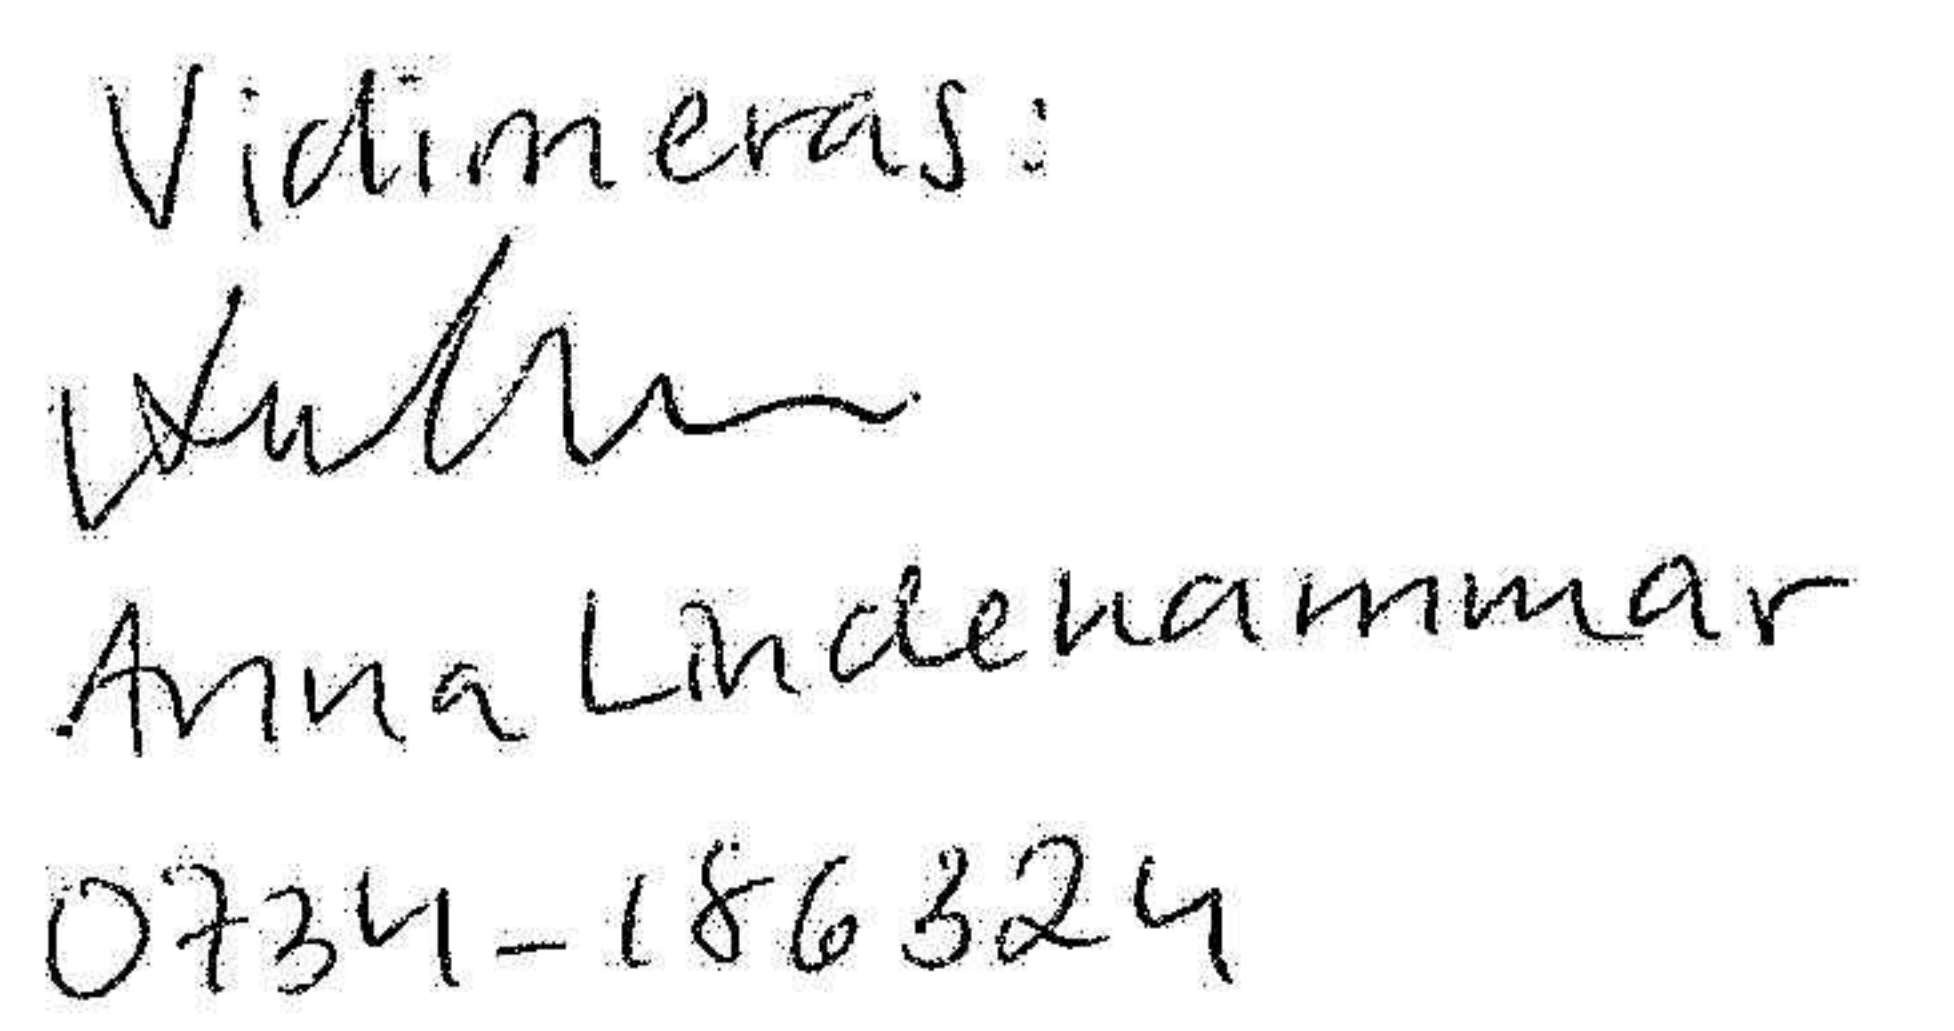 Vidimeras:
Anna Lindenammar
0734-186324